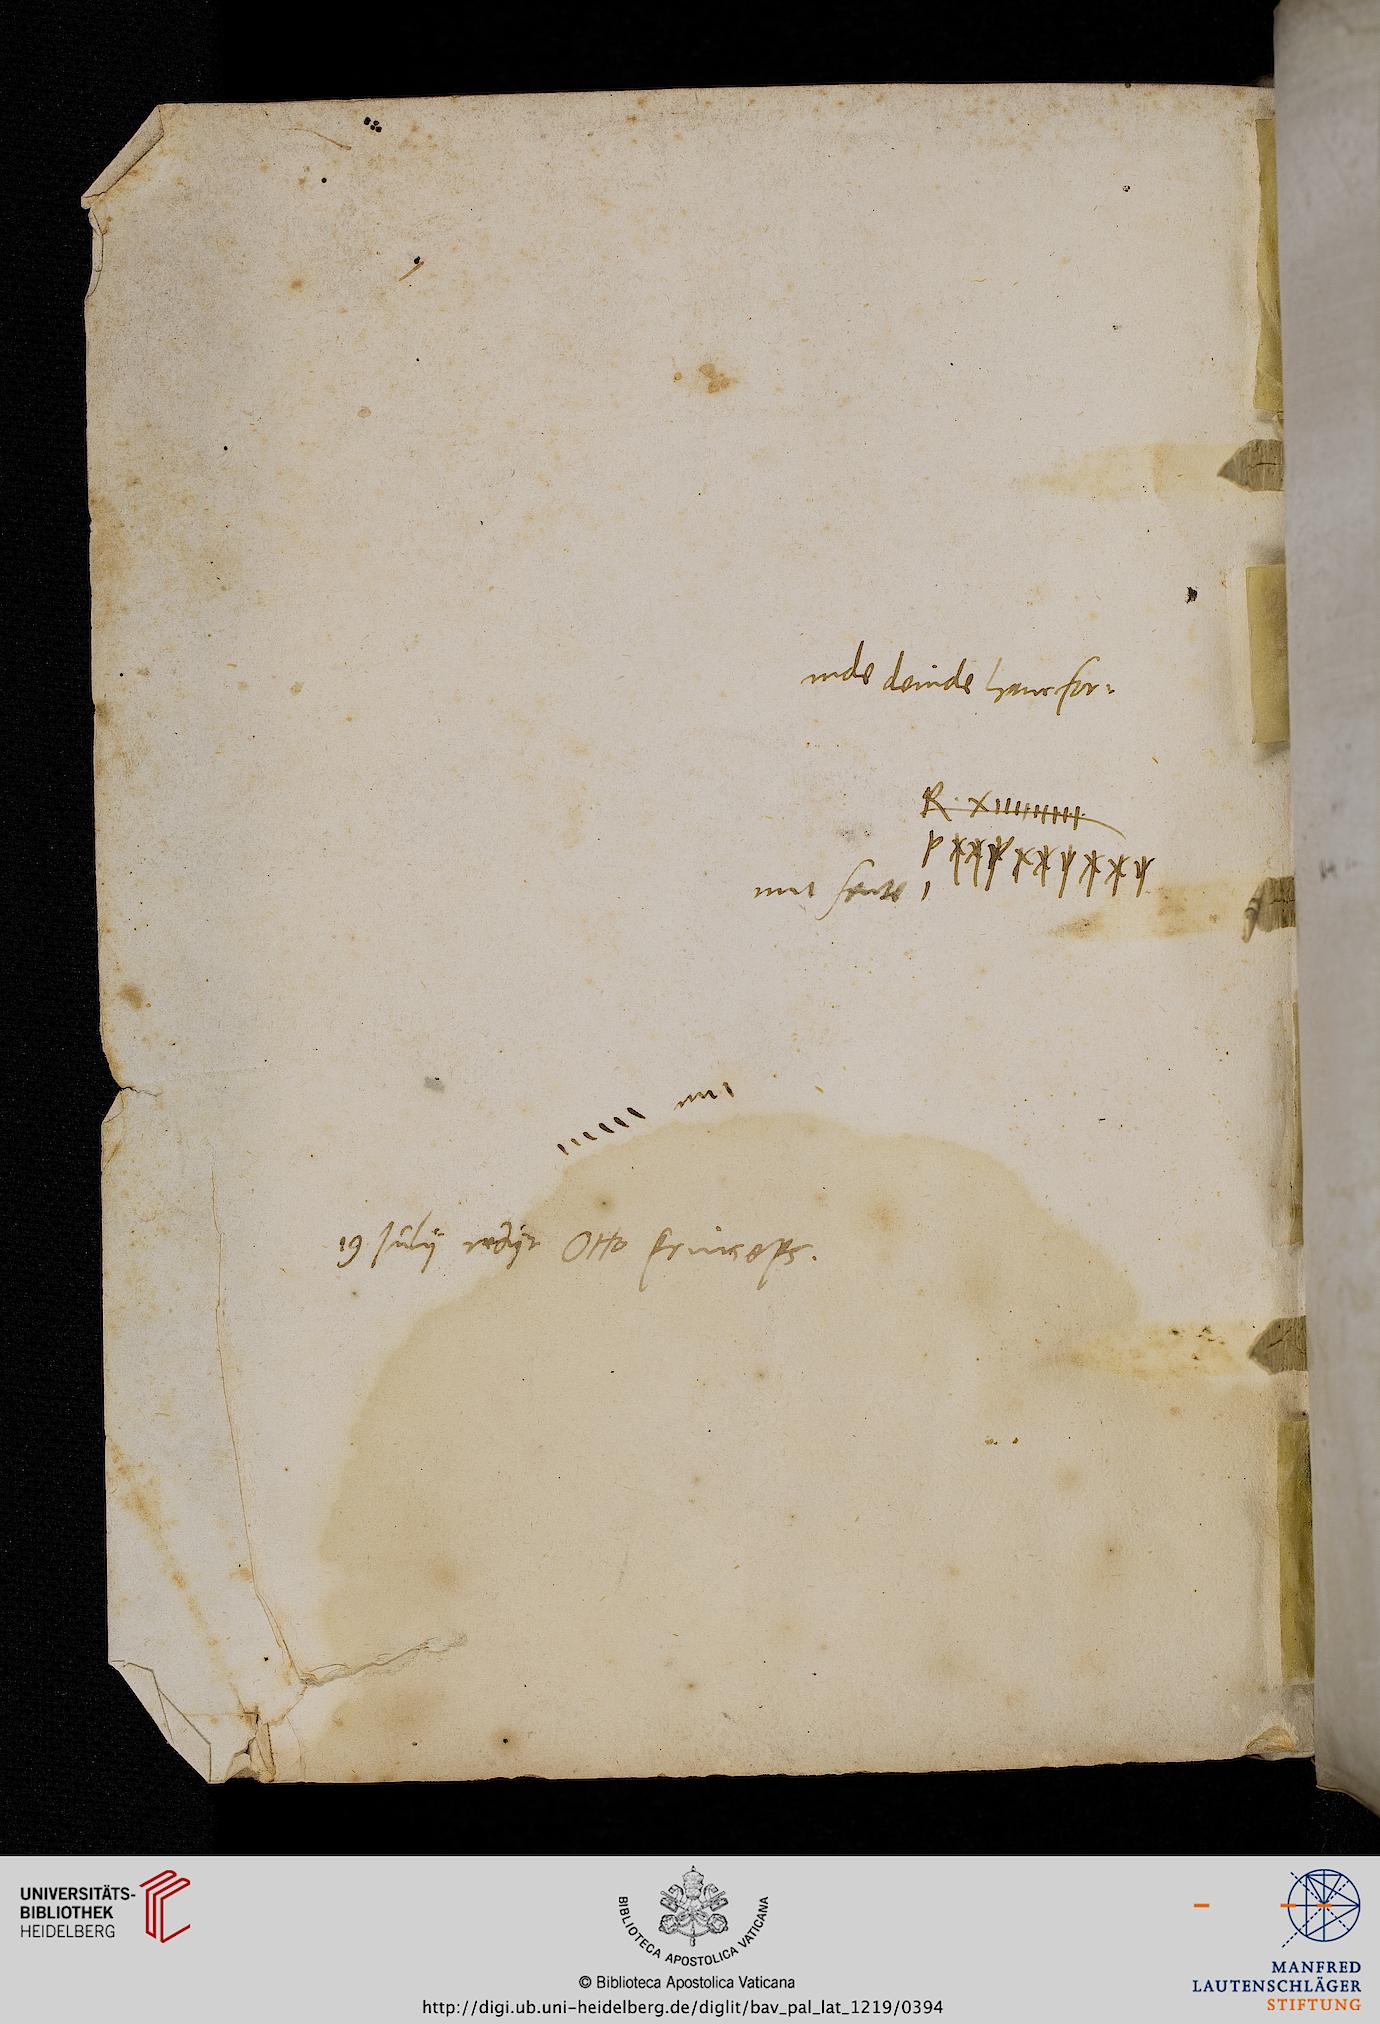 inde deinde hanc for:
R. XIIIIIIIII
19 Julij redijt Otto princeps.
UNIVERSITÄTS-
BIBLIOTHEK
HEIDELBERG
BIBLIOTECA APOSTOLICA VATICANA
© Biblioteca Apostolica Vaticana
http://digi.ub.uni-heidelberg.de/diglit/bav_pal_lat_1219/0394
MANFRED
LAUTENSCHLÄGER
STIFTUNG